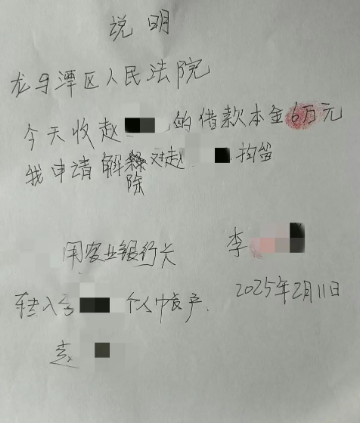 说明
龙马潭区人民法院
今天收赵 的借款本金6万元
我申请解除对赵 拘留
用农业银行卡 李
转入 个人账户. 2025年2月11日